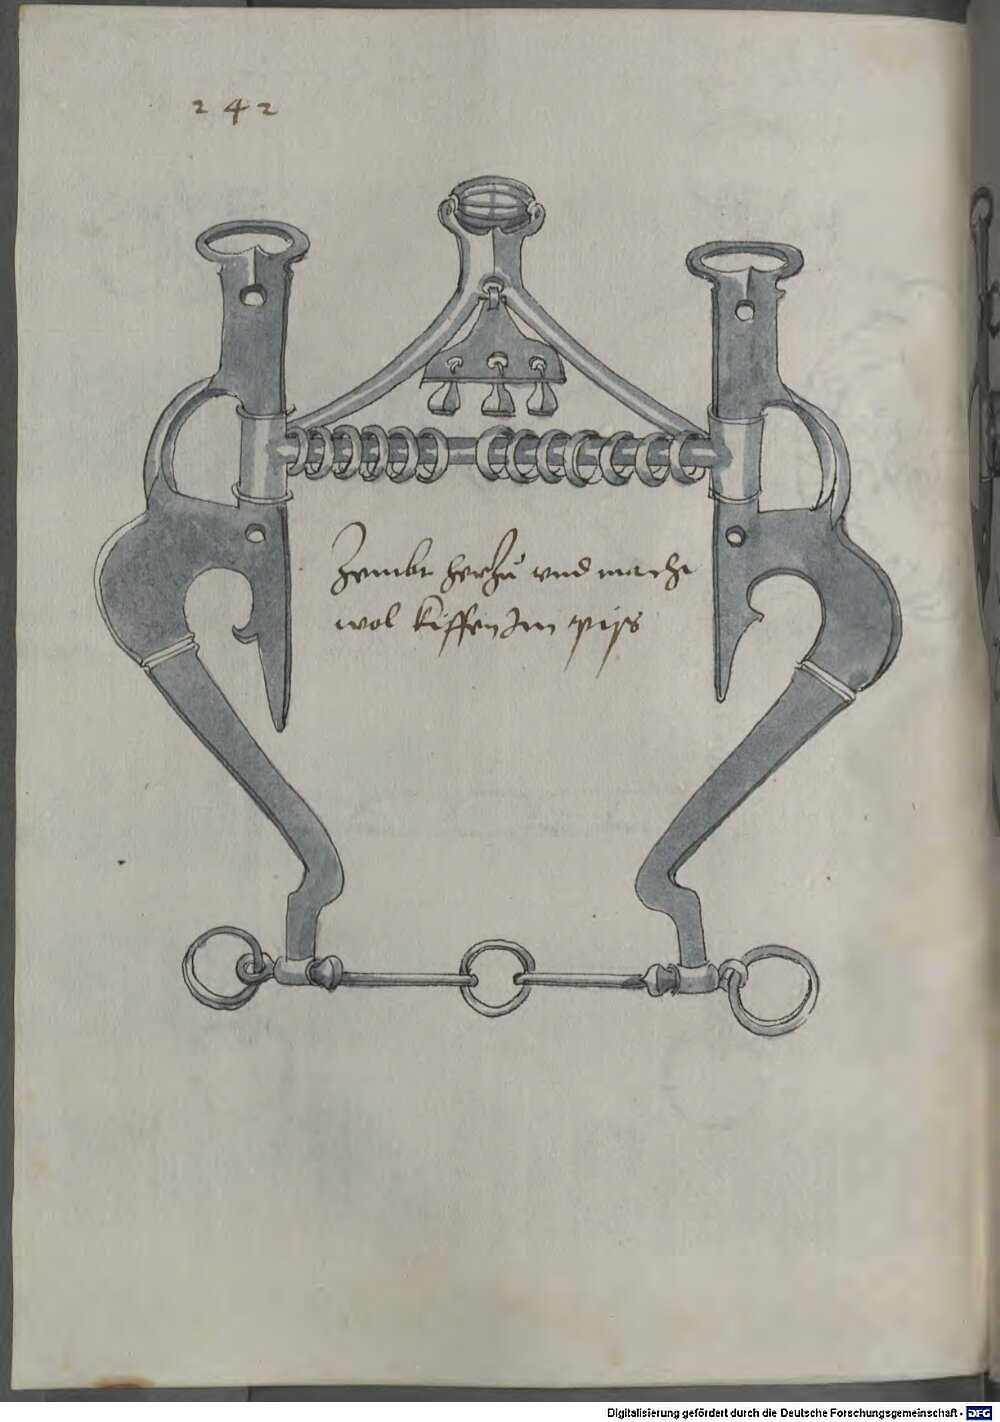 242
Zembt herzu vnd macht
wol kiffen Im piss
Digitalisierung gefördert durch die Deutsche Forschungsgemeinschaft - DFG